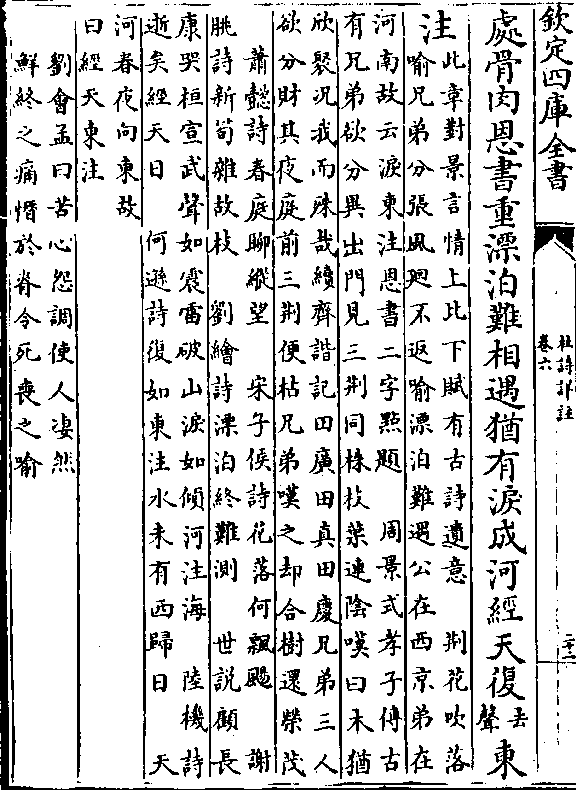 欽定四庫全書
杜詩詳註
卷六
處骨肉恩書重漂泊難相遇猶有淚成河經天復去聲東
注
此章對景言情上比下賦有古詩遺意 荆花吹落
喻兄弟分張風廻不返喻漂泊難遇公在西京弟在
河南故云淚東注恩書二字㸃題 周景式孝子傳古
有兄弟欲分異出門見三荆同株枝葉連陰嘆曰木猶
欣聚况我而殊哉續齊諧記田廣田真田慶兄弟三人
欲分財其夜庭前三荆便枯兄弟嘆之却合樹還榮茂
蕭慤詩春庭聊縱望 宋子侯詩花落何飄颺 謝
朓詩新筍雜故枝 劉繪詩漂泊終難測 世説顧長
康哭桓宣武聲如震雷破山淚如傾河注海 陸機詩
逝矣經天日 何遜詩復如東注水未有西歸日 天
河春夜向東故
曰經天東注
劉會孟曰苦心怨調使人凄然
鮮終之痛憯於脊令死喪之喻